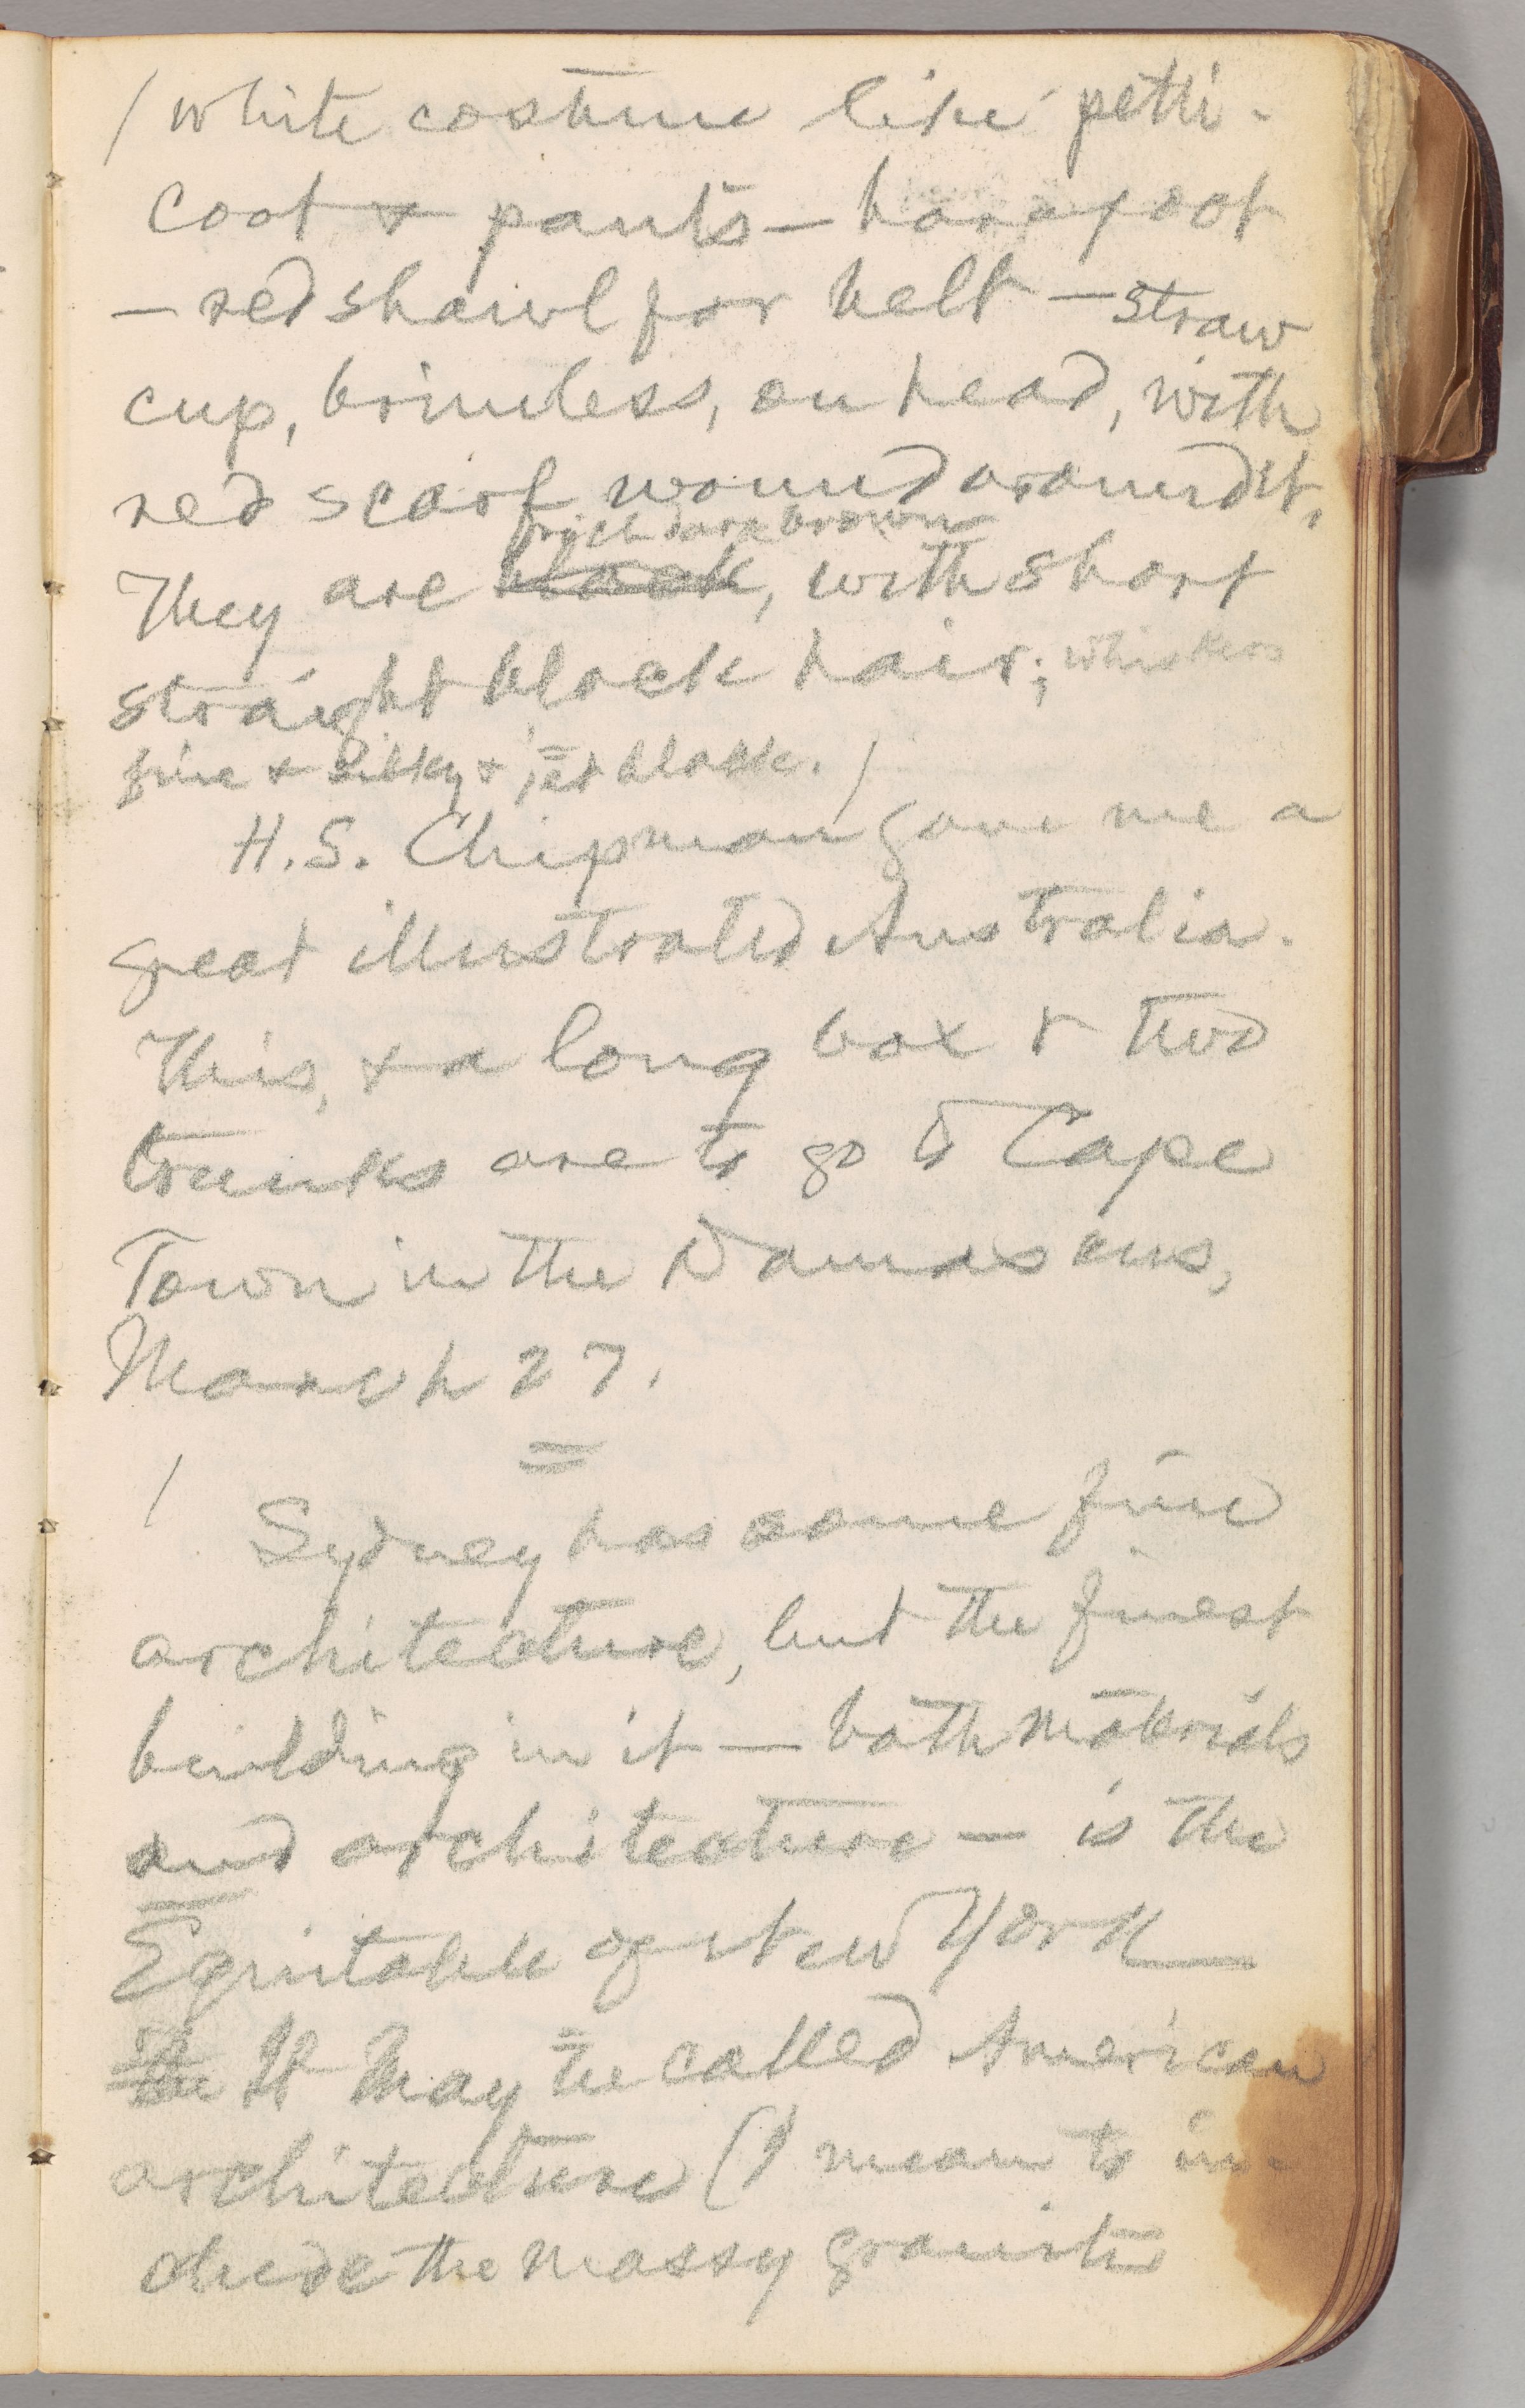 / white costume like petti-
coat & pants — barefoot
— red shawl for belt — straw
cup, brimless, on head, with
red scarf wound around it.
rich dark brown
They are black, with short
straight black hair; whiskers
fine & silky & jet black. /
H.S. Chipman gave me a
great illustrated Australia.
This, & a long box & two
trunks are to go to Cape
Town in the Damascus,
March 27.
=
/ Sydney has some fine
architecture, but the finest
building in it — both materials
and architecture — is the
Equitable of New York —
the It may be called American
architecture (I mean to in-
clude the massy granite